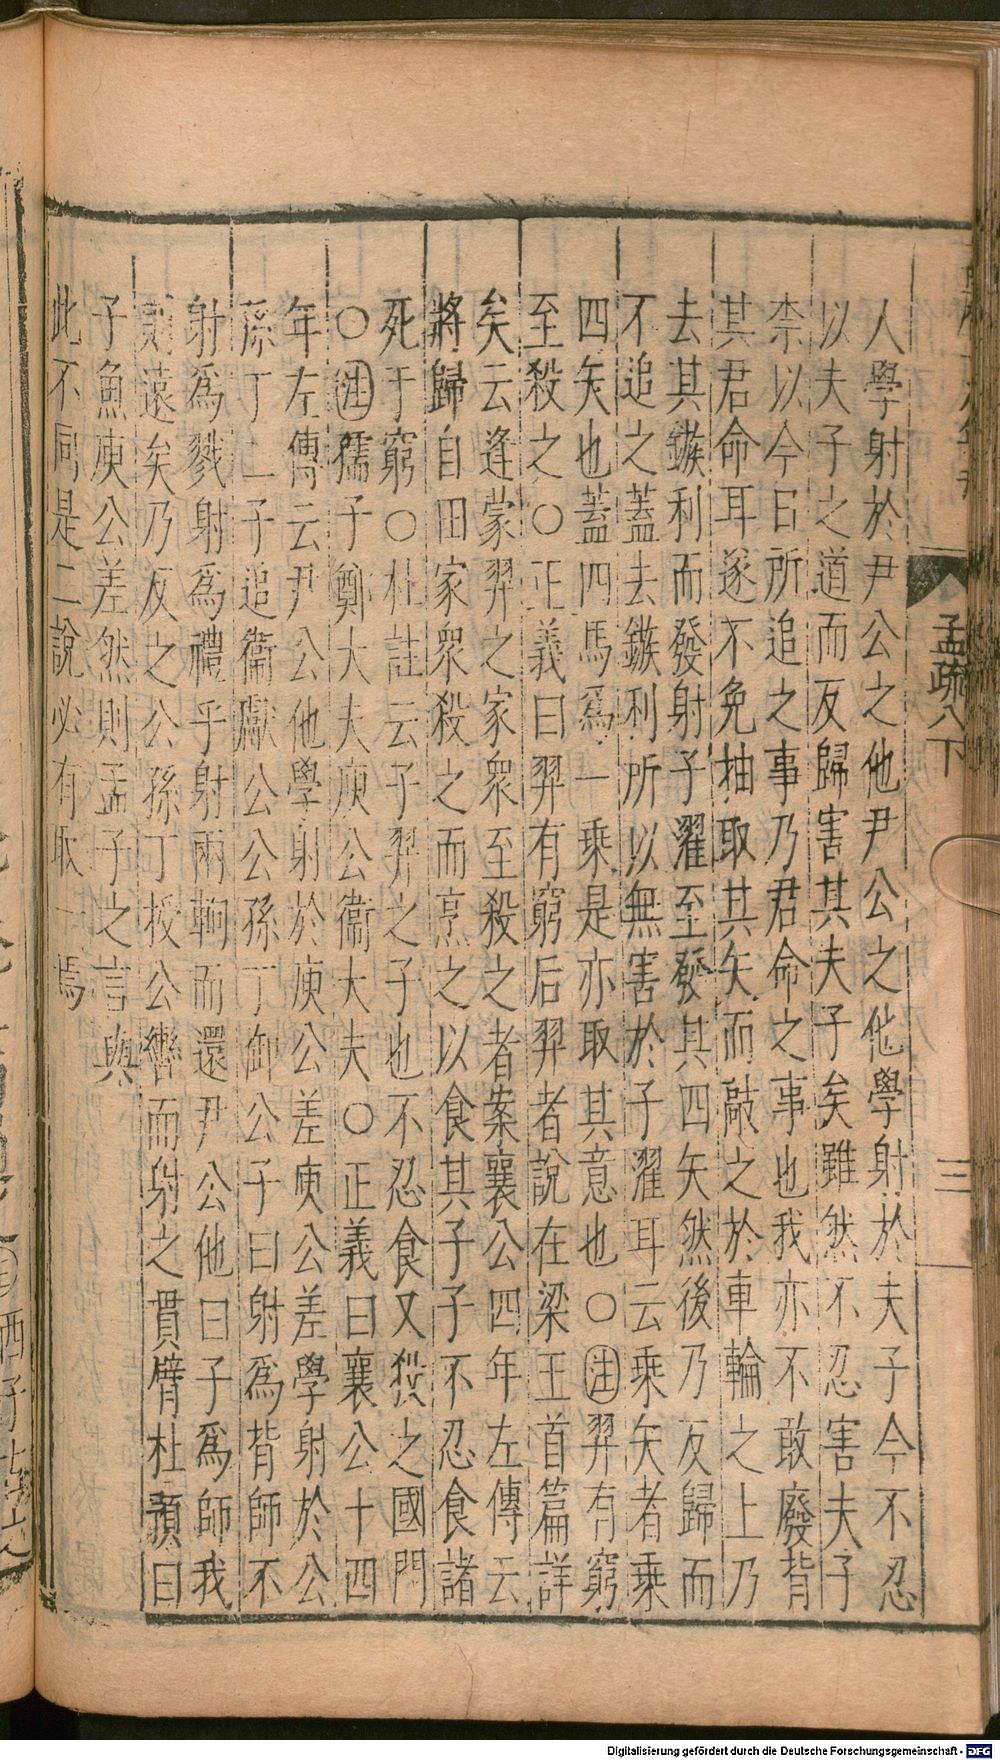 人學射於尹公之他尹公之他學射於夫子今不忍
以夫子之道而反歸害其夫子矣雖然不忍害夫子
柰以今日所追之事乃君命之事也我亦不敢廢背
其君命耳遂不免抽取其矢而敲之於車輪之上乃
去其鏃利而發射子濯至發其四矢然後乃反歸而
不追之蓋去鏃利所以無害於子濯耳云乘矢者乘
四矢也蓋四馬爲一乘是亦取其意也○注羿有窮
至殺之○正義曰羿有窮后羿者說在梁王首篇詳
矣云逢蒙羿之家衆至殺之者案襄公四年左傳云
將歸自田家衆殺之而烹之以食其子子不忍食諸
死于窮○杜註云子羿之子也不忍食又殺之國門
○注孺子鄭大夫庾公衞大夫○正義曰襄公十四
年左傳云尹公他學射於庾公差庾公差學射於公
孫丁二子追衞獻公公孫丁御公子曰射爲背師不
射爲戮射爲禮乎射兩軥而還尹公他曰子爲師我
則遠矣乃反之公孫丁授公轡而射之貫臂杜預曰
子魚庾公差然則孟子之言與
此不同是二說必有取一焉
孟疏八下
三
Digitalisierung gefördert durch die Deutsche Forschungsgemeinschaft - DFG